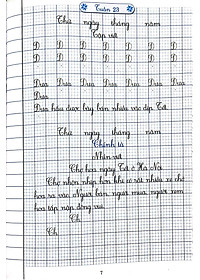 Tuần 23
Thứ ngày tháng năm
Tập viết
D D D D D D D
D D D D D D D
Dưa Dưa Dưa Dưa Dưa Dưa Dưa
Dưa
Dưa hấu được bày bán nhiều vào dịp Tết.
Thứ ngày tháng năm
Chính tả
Nhìn viết
Chợ hoa ngày Tết ở Hà Nội
Chợ nhộn nhịp hơn khi có rất nhiều xe chở
hoa ra vào. Người bán, người mua, người xem
hoa tấp nập đông vui.
Ch
Ch
7